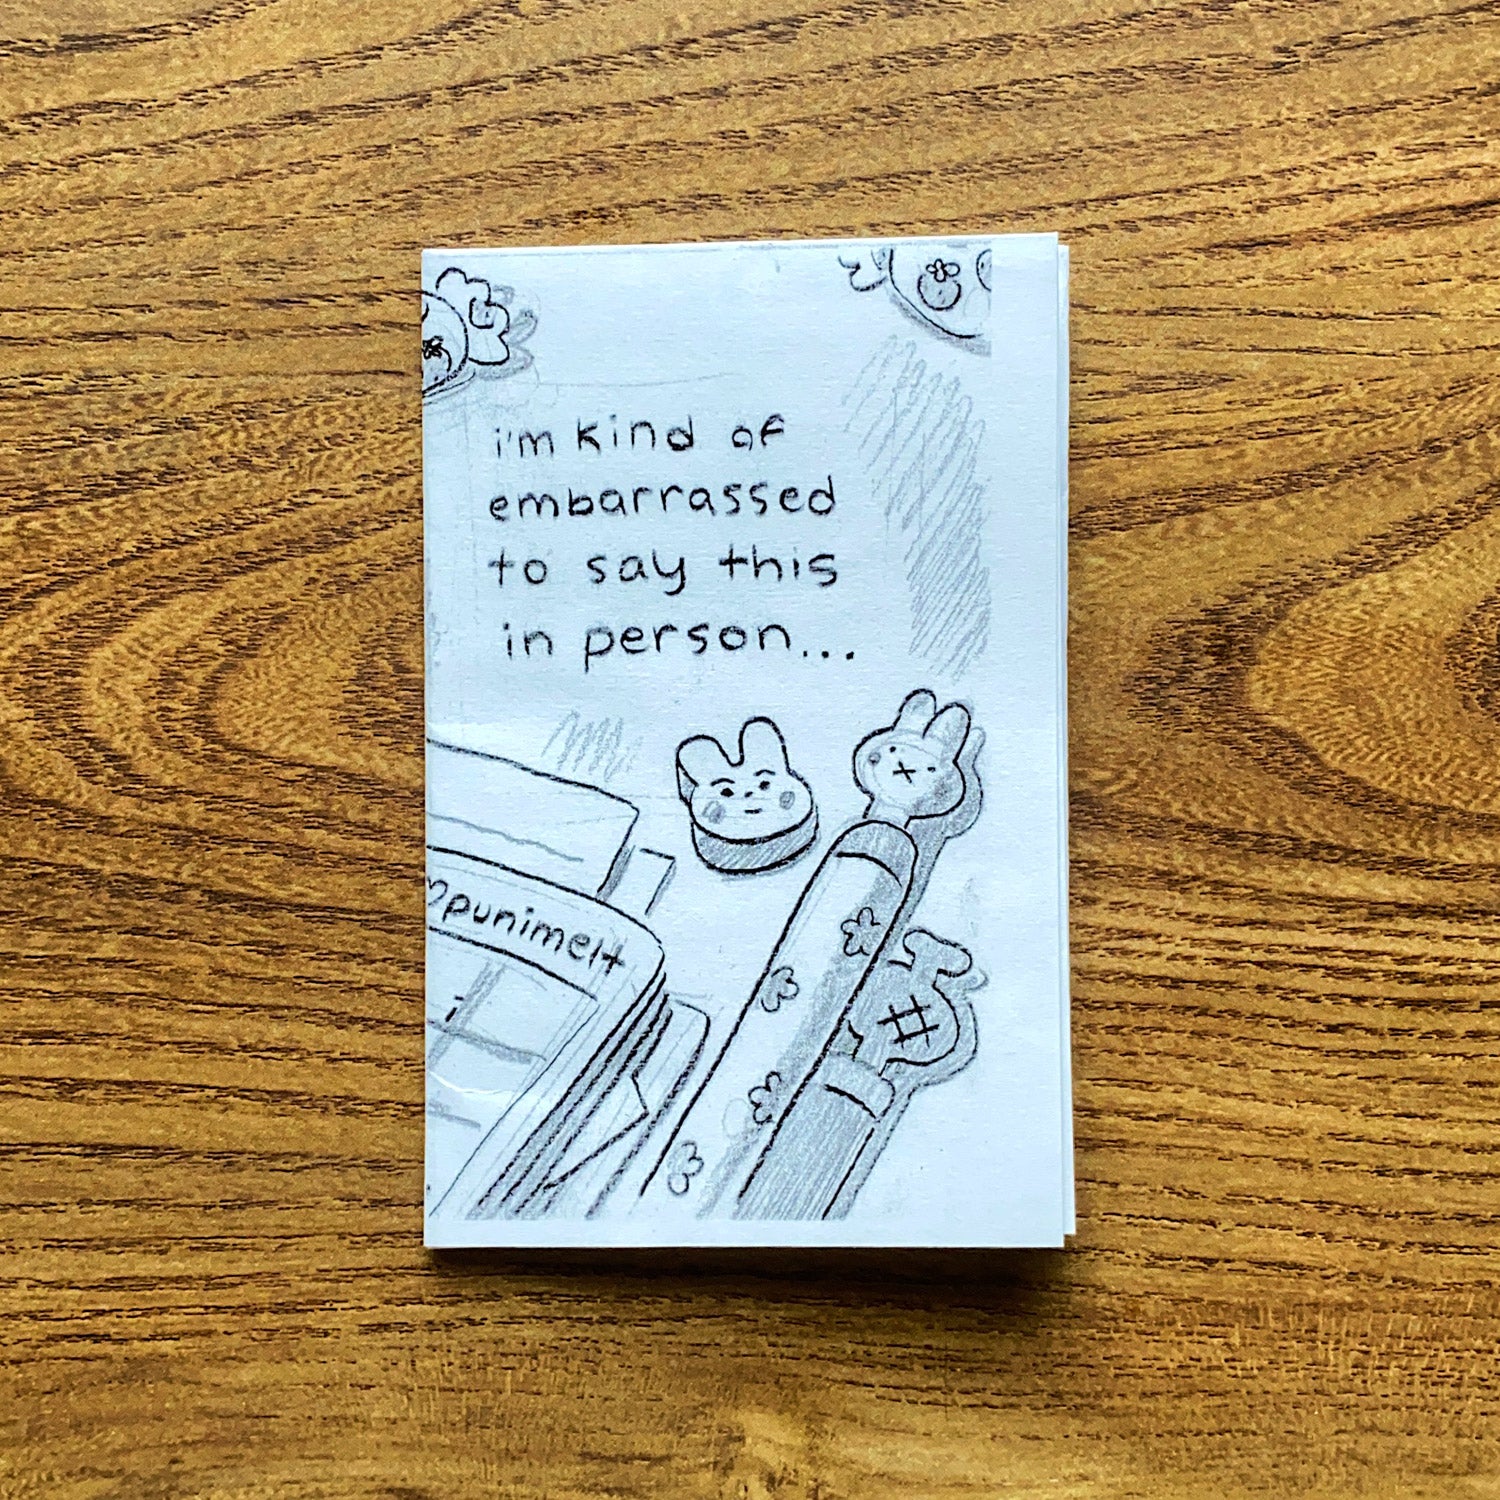 i'm kind of
embarrassed
to say this
in person...
♡punimelt